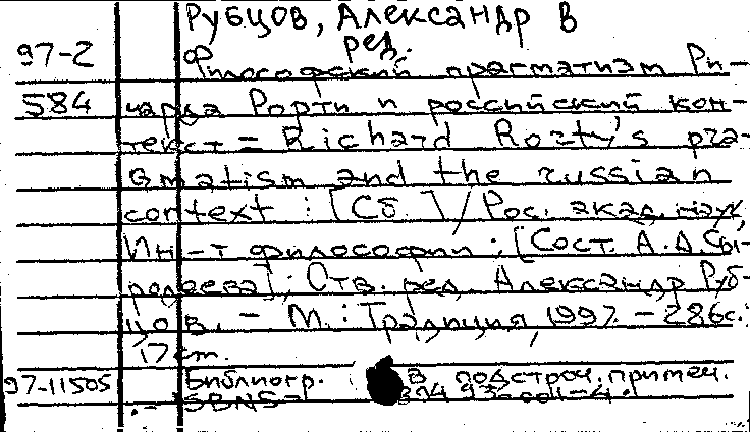 Рубцов, Александр В
ред.
97-2 Философский прагматизм Ри-
584 чарда Рорти и российский кон-
текст = Richard Rorty's pra-
gmatism and the russian
context : [Сб.] / Рос. акад. наук,
Ин-т философии ; [Сост. А. А. Сы-
родеева] ; Отв. ред. Александр Руб-
цов. - М. : Традиция, 1997. - 286с. ;
17 cm.
97-11505 Библиогр. в подстроч. примеч.